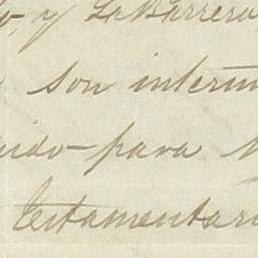 y LaBarrera
son interin
para
Testamentari